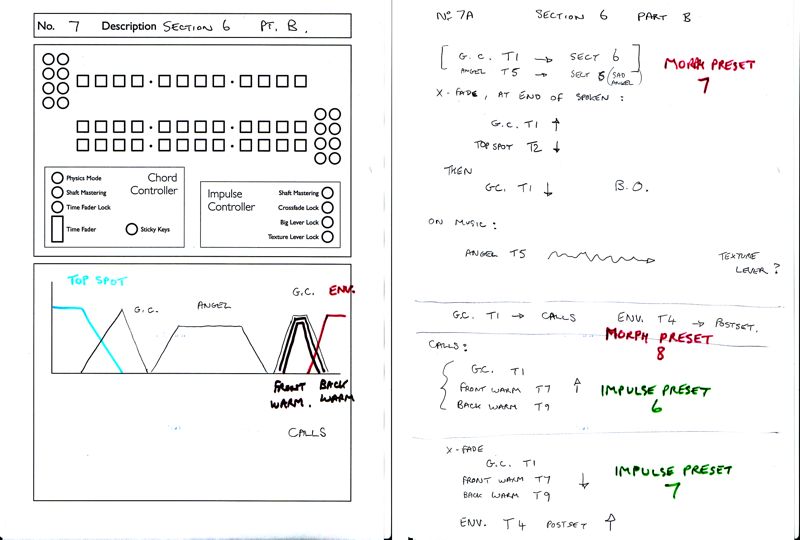 No. 7 Description SECTION 6 PT. B.
Physics Mode
Shaft Mastering
Time Fader Lock
Time Fader
Chord Controller
Sticky Keys
Impulse Controller
Shaft Mastering
Crossfade Lock
Big Lever Lock
Texture Lever Lock
TOP SPOT
G.C.
ANGEL
G.C.
ENV.
FRONT WARM.
BACK WARM
CALLS
No. 7A SECTION 6 PART B
G.C. T1 → SECT 6
ANGEL T5 → SECT 6 (SAD ANGEL)
MORPH PRESET 7
X-FADE, AT END OF SPOKEN:
G.C. T1 ↑
TOP SPOT T2 ↓
THEN
GC. T1 ↓ B.O.
ON MUSIC:
ANGEL T5 TEXTURE LEVER?
G.C. T1 → CALLS ENV. T4 → POSTSET.
MORPH PRESET 8
CALLS:
G.C. T1
FRONT WARM T7 ↑
BACK WARM T9
IMPULSE PRESET 6
X-FADE
G.C. T1
FRONT WARM T7 ↓
BACK WARM T9
IMPULSE PRESET 7
ENV. T4 POSTSET ↑